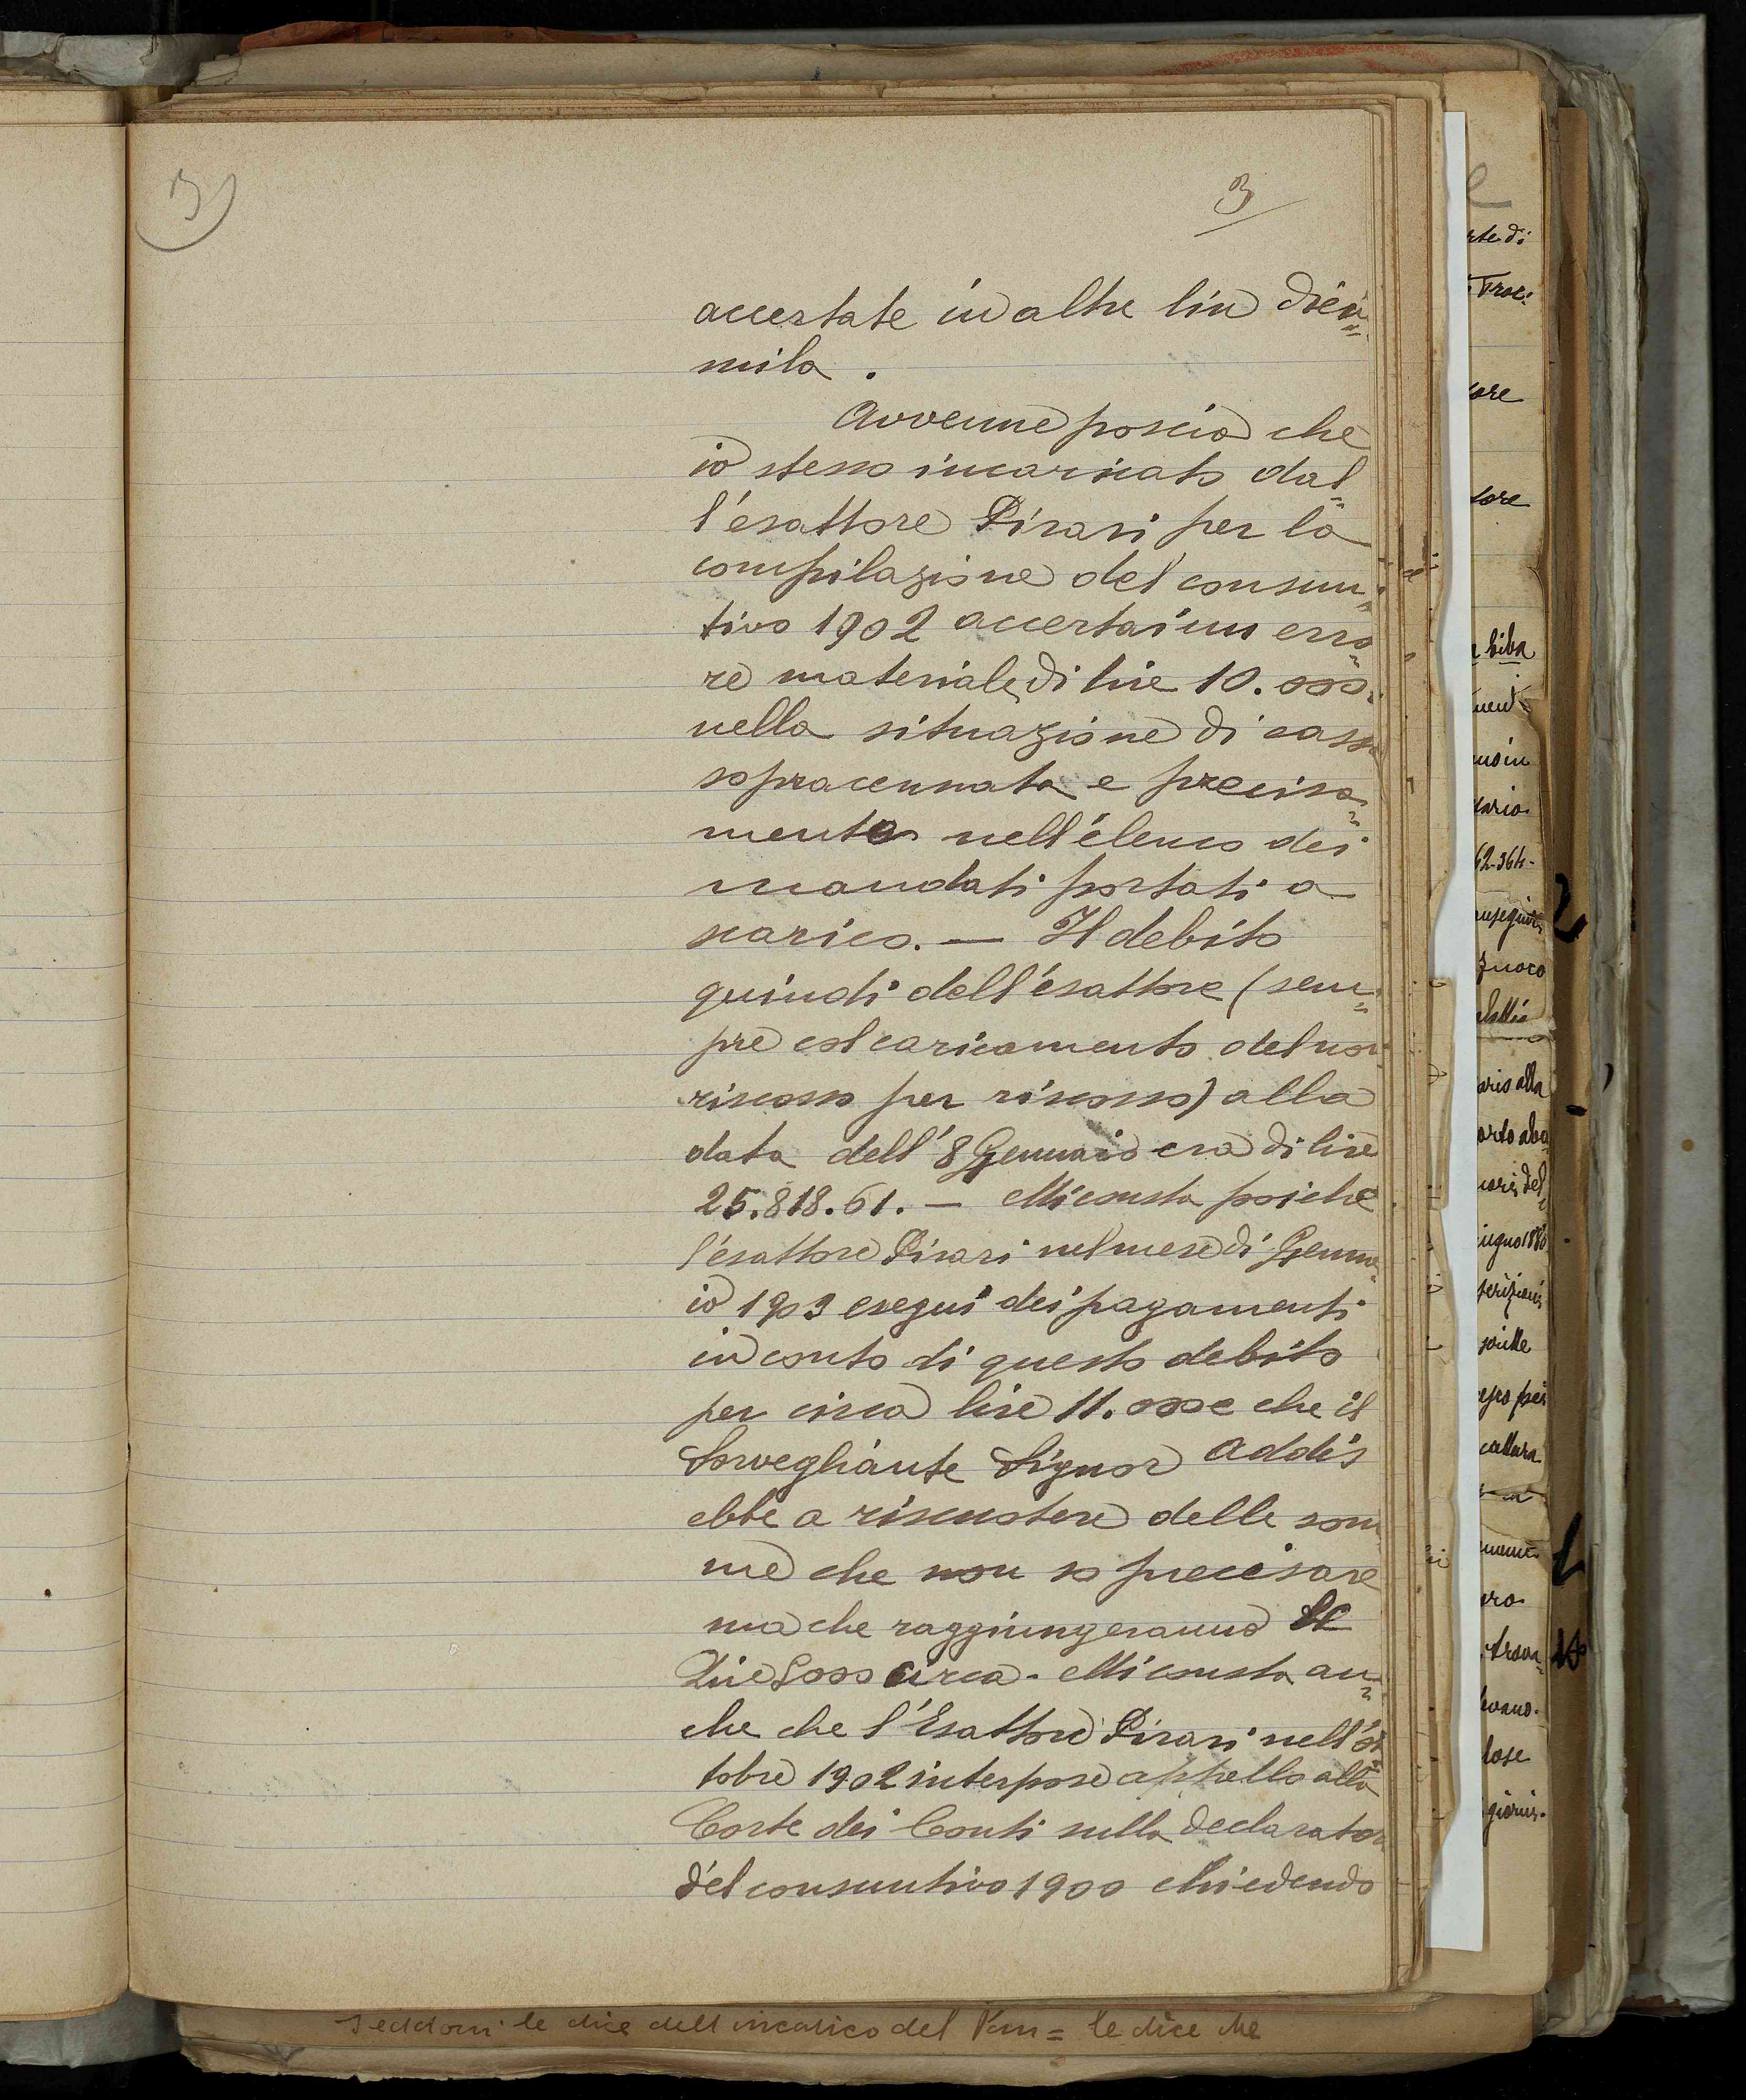 3)
3
accertate in altre lire dieci=
mila.
Avvenne poscia che
io stesso incaricato dal=
l'esattore Pirari per la
compilazione del consun=
tivo 1902 accertai un erro=
re materiale di lire 10.000.
nella situazione di cassa
sopracennata e precisa=
mente nell'elenco dei
mandati portati a
scarico. — Il debito
quindi dell'esattore (sem=
pre col caricamento del non
riscosso per riscosso) alla
data dell'8 Gennaio era di lire
25.818.61. — Mi consta poi che
l'esattore Pirari nel mese di Genna=
io 1903 eseguì dei pagamenti
in conto di questo debito
per circa lire 11.000 e che il
Sorvegliante Signor Addis
ebbe a riscuotere delle som
me che non so precisare
ma che raggiungeranno le
Lire circa. Mi consta an=
che che l'Esattore Pirari nell'ot=
tobre 1902 interpose appello alla
Corte dei Conti sulla declarator
del consuntivo 1900 chiedendo
rte di
Proc:
tore
tore
biba
ment
uoin
dario
62-364-
zuoco
ario alla
orto
iugno 1880
scrizioni
cattura
oro
lose
giorni.
Seddoni le dice dell'incarico del Pani = le dice che